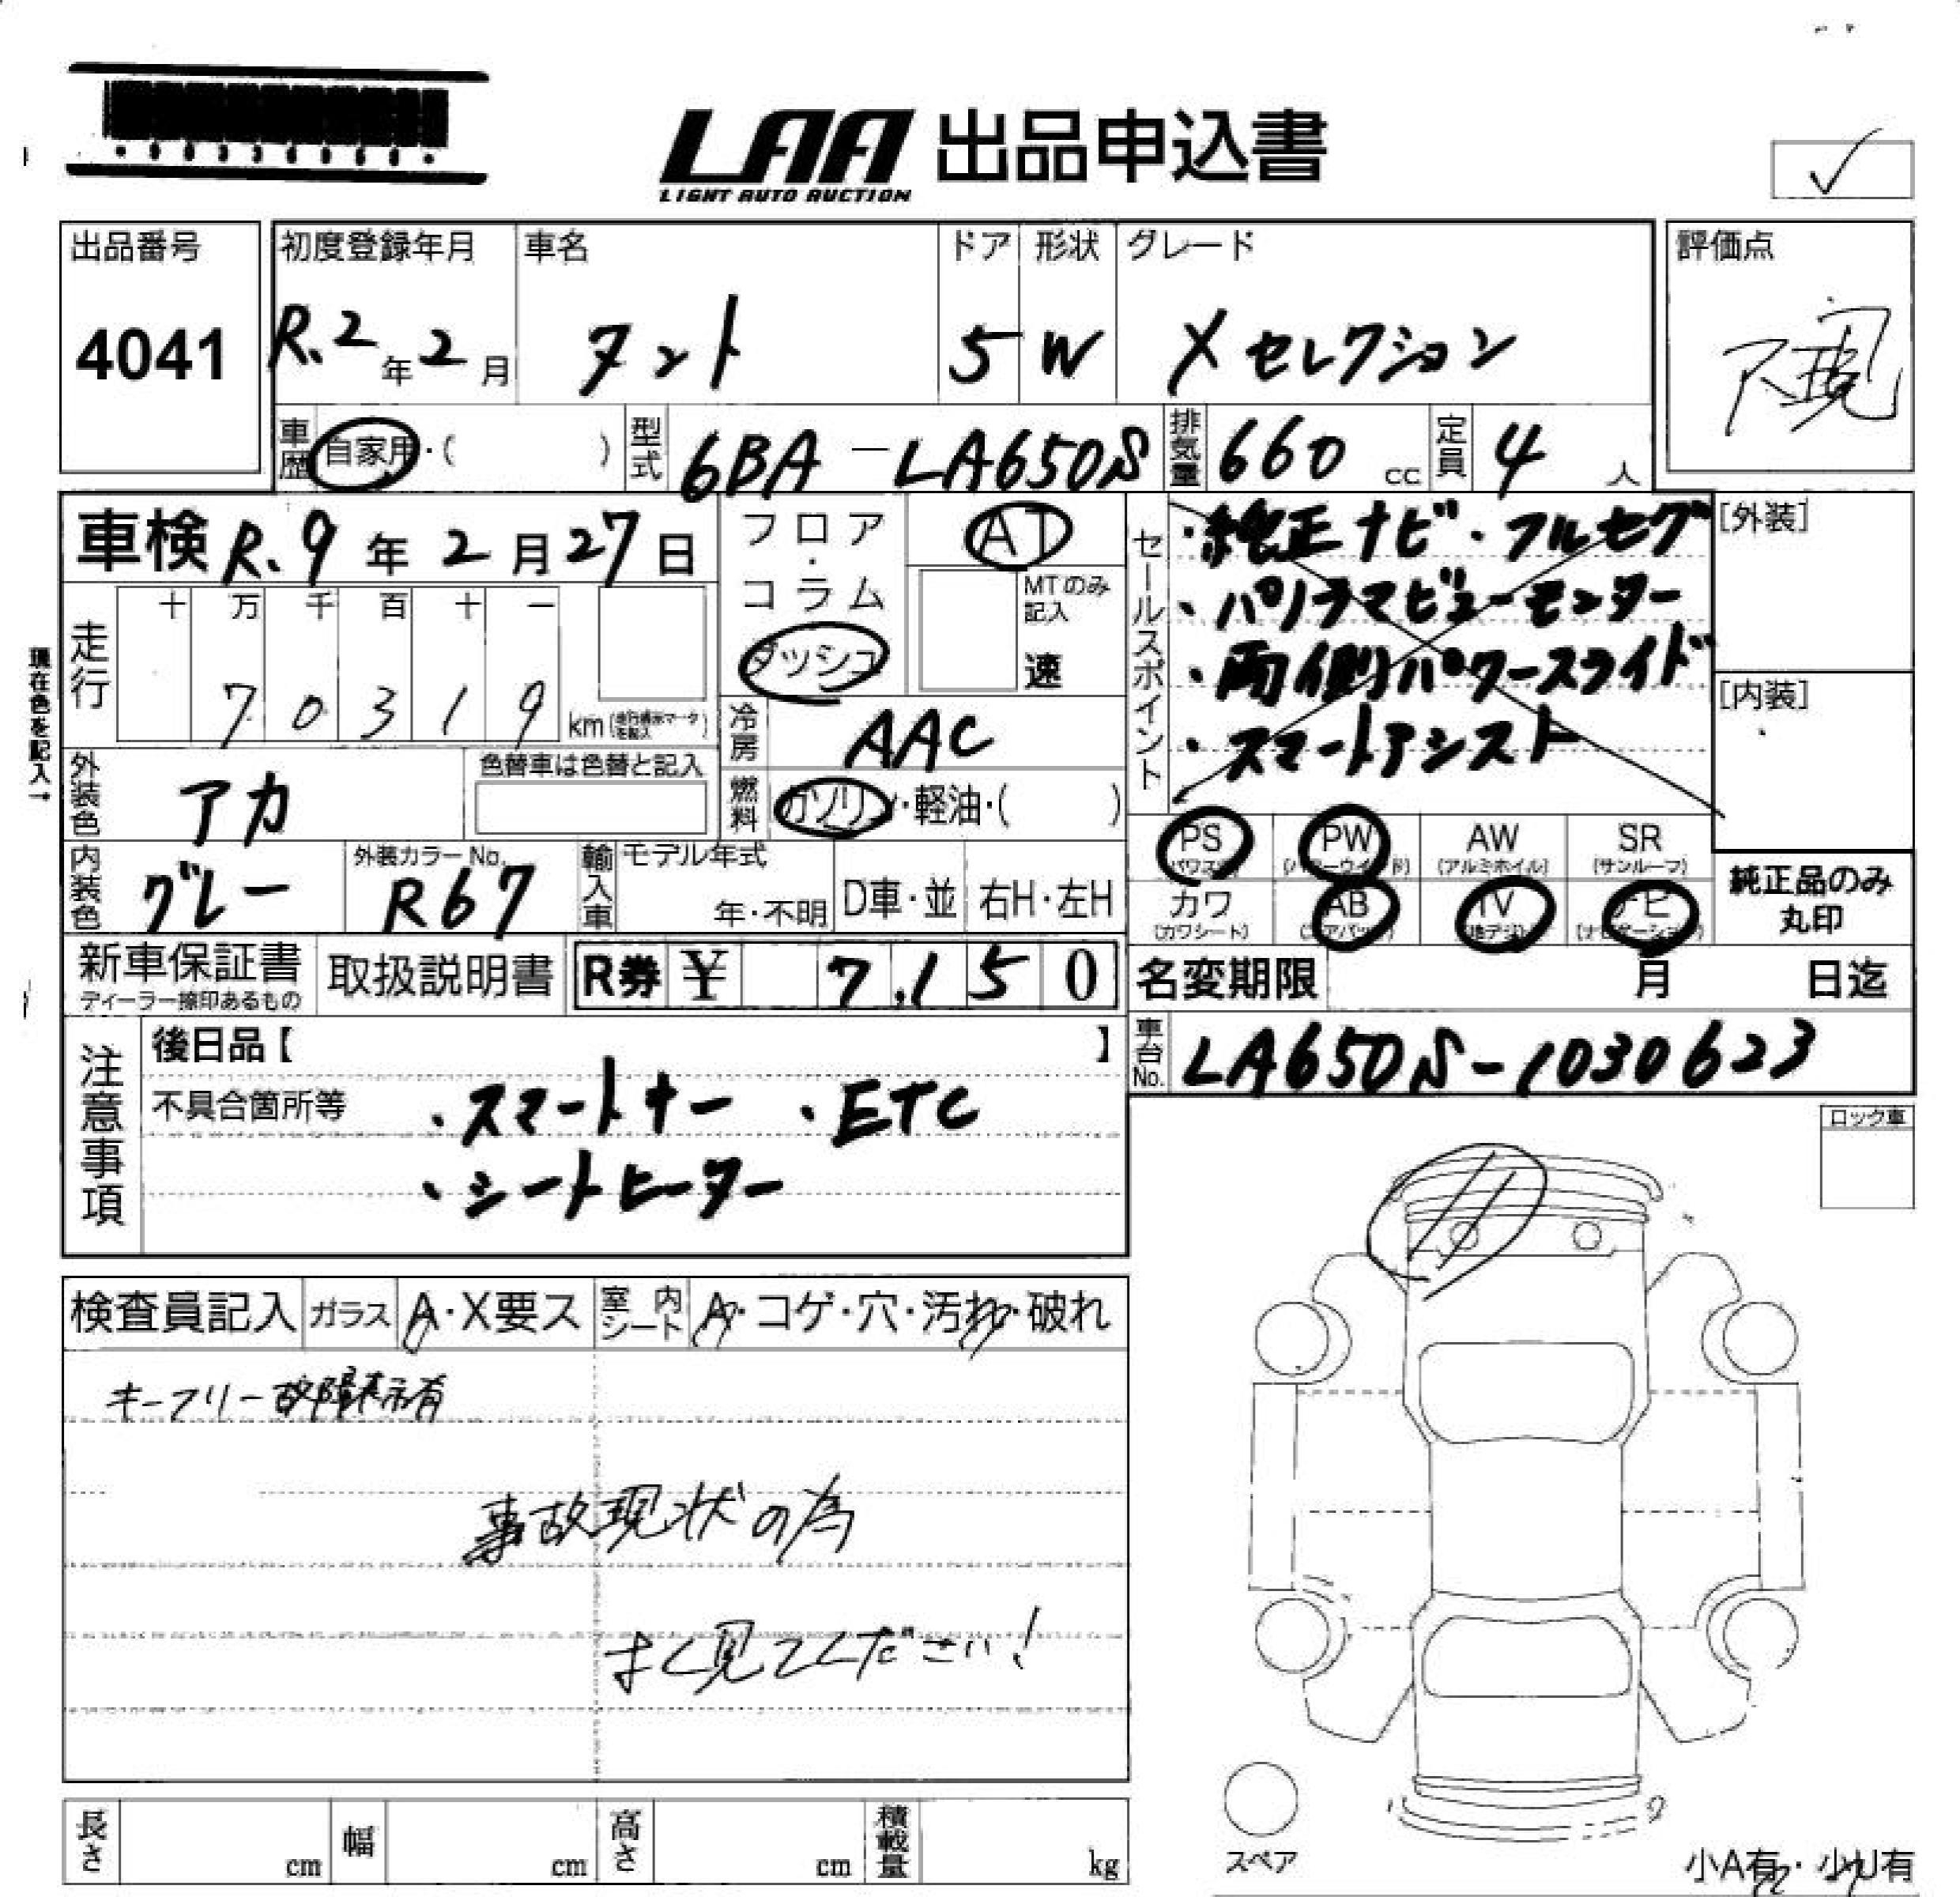 LAA 出品申込書
LIGHT AUTO AUCTION
出品番号
4041
初度登録年月 車名 ドア 形状 グレード
R.2年2月 タント 5 W Xセレクション
評価点
車歴 自家用・( ) 型式 6BA-LA650S 排気量 660cc 定員 4人
車検 R.9年2月27日
フロア・コラム
ダッシュ
AT
MTのみ記入
速
セールスポイント
・純正ナビ・フルセグ
・パノラマビューモニター
・両側パワースライド
・スマートアシスト
[外装]
[内装]
現在色を記入→
走行 十 万 千 百 十 一
70319 km
冷房 AAC
外装色 アカ 色替車は色替と記入
燃料 ガソリン・軽油・( )
内装色 グレー 外装カラーNo. R67 輸入車 モデル年式 年・不明 D車・並 右H・左H
PS (パワステ) PW (パワーウインド) AW (アルミホイル) SR (サンルーフ)
カワ (カワシート) AB (エアバッグ) TV (地デジ) ナビ (ナビゲーション)
純正品のみ
丸印
新車保証書 取扱説明書 R券 ¥ 7,150
ディーラー捺印あるもの
名変期限 月 日迄
車台No. LA650S-1030623
注意事項
後日品【 】
不具合箇所等 ・スマートキー ・ETC
・シートヒーター
ロック車
検査員記入 ガラス A・X要ス 室内シート A・コゲ・穴・汚れ・破れ
キーフリー故障表示有
事故現状の為
よく見てください!
長さ cm 幅 cm 高さ cm 積載量 kg
スペア
小A有・少U有